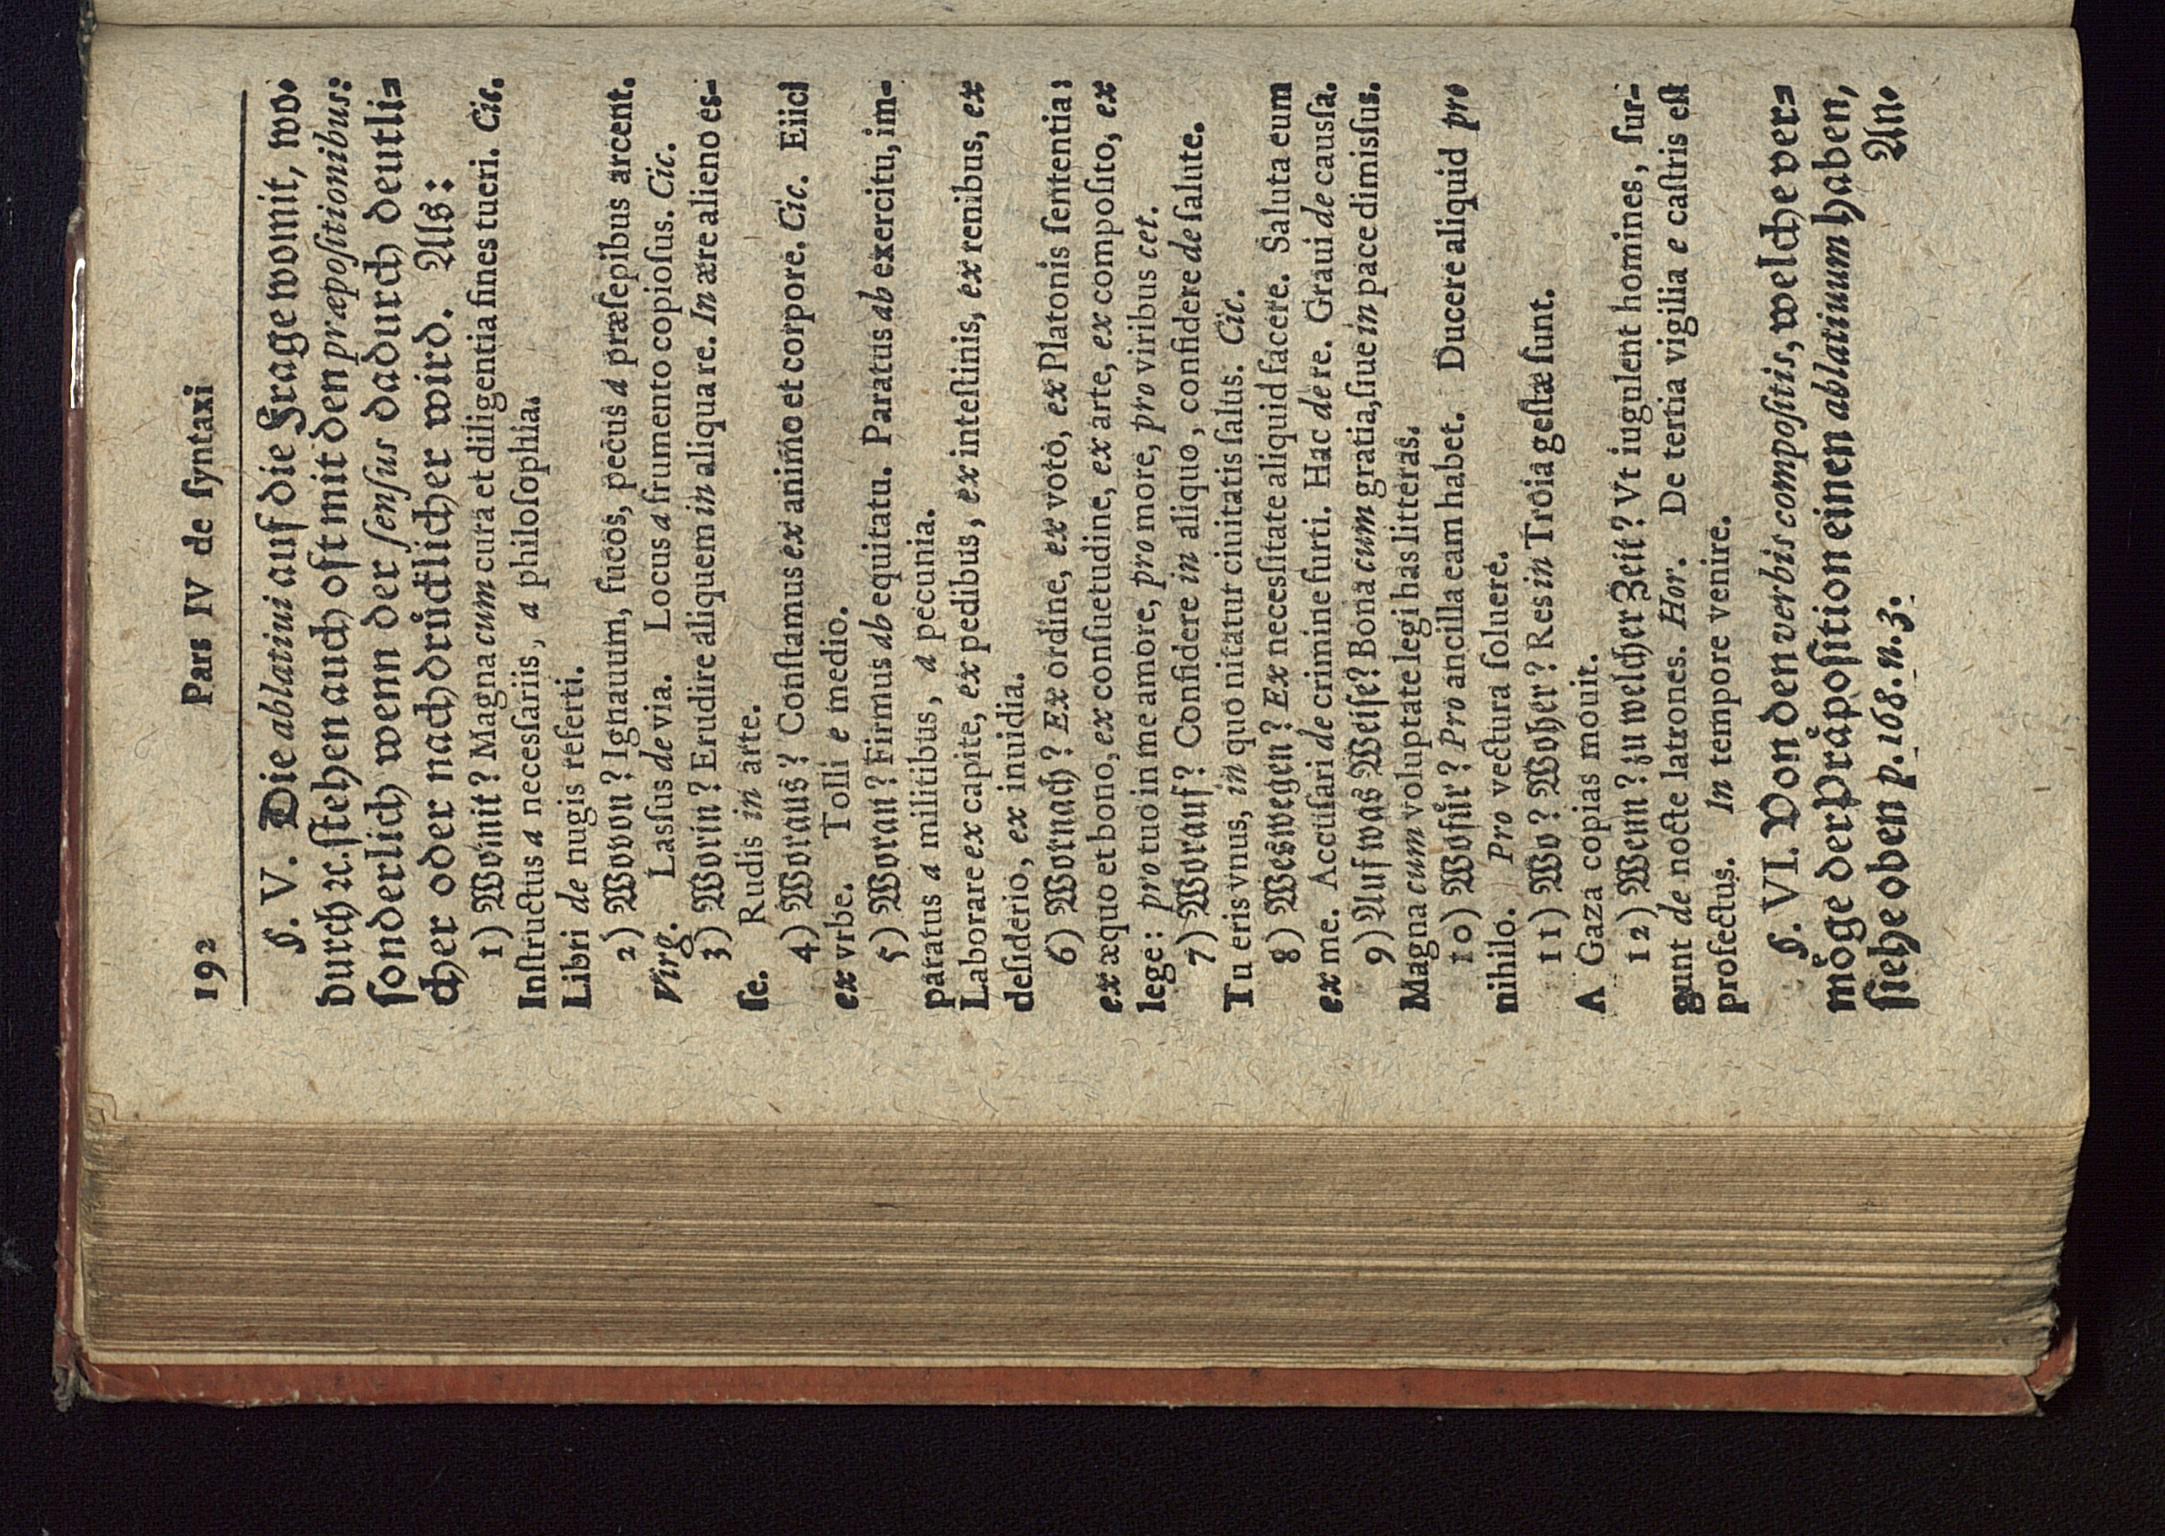 192 Pars IV de ſyntaxi
§. V. Die ablatiui auf die Frage womit, wo-
durch ꝛc. ſtehen auch oft mit den præpoſitionibus:
ſonderlich wenn der ſenſus dadurch deutli-
cher oder nachdruͤcklicher wird. Als:
1) Womit? Magna cum cura et diligentia fines tueri. Cic.
Inſtructus a neceſſariis, a philoſophia.
Libri de nugis referti.
2) Wovon? Ignauum, fucos, pecus a præſepibus arcent.
Virg. Laſſus de via. Locus a frumento copioſus. Cic.
3) Worin? Erudire aliquem in aliqua re. In ære alieno eſ-
ſe. Rudis in arte.
4) Woraus? Conſtamus ex animo et corpore. Cic. Eiici
ex vrbe. Tolli e medio.
5) Woran? Firmus ab equitatu. Paratus ab exercitu, im-
paratus a militibus, a pecunia.
Laborare ex capite, ex pedibus, ex inteſtinis, ex renibus, ex
deſiderio, ex inuidia.
6) Wornach? Ex ordine, ex voto, ex Platonis ſententia:
ex æquo et bono, ex conſuetudine, ex arte, ex compoſito, ex
lege: pro tuo in me amore, pro more, pro viribus cet.
7) Worauf? Confidere in aliquo, confidere de ſalute.
Tu eris vnus, in quo nitatur ciuitatis ſalus. Cic.
8) Weswegen? Ex neceſſitate aliquid facere. Saluta eum
ex me. Accuſari de crimine furti. Hac de re. Graui de cauſſa.
9) Auf was Weiſe? Bona cum gratia, ſiue in pace dimiſſus.
Magna cum voluptate legi has litteras.
10) Wofuͤr? Pro ancilla eam habet. Ducere aliquid pro
nihilo. Pro vectura ſoluere.
11) Wo? Woher? Res in Troia geſtæ ſunt.
A Gaza copias mouit.
12) Wenn? zu welcher Zeit? Vt iugulent homines, ſur-
gunt de nocte latrones. Hor. De tertia vigilia e caſtris eſt
profectus. In tempore venire.
§. VI. Von den verbis compoſitis, welche ver-
moͤge der Praͤpoſition einen ablatiuum haben,
ſiehe oben p. 168. n. 3.
An-